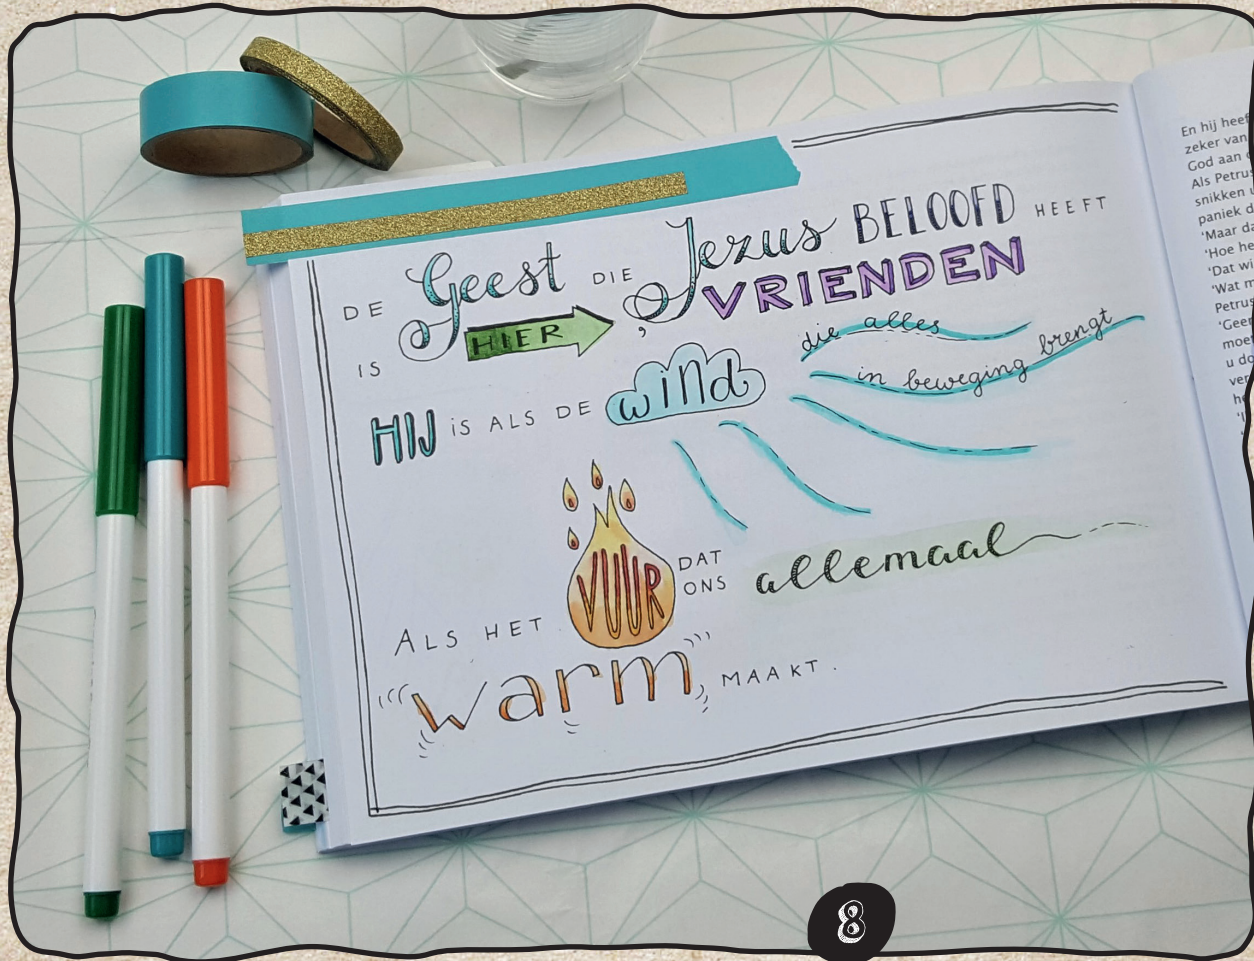 DE Geest DIE Jezus BELOOFD HEEFT
IS HIER, VRIENDEN
HIJ iS ALS DE wiNd
die alles
in beweging brengt
ALS HET VUUR DAT
ONS allemaal
warm MAAKT.
En hij heef
zeker van
God aan
Als Petrus
snikken
paniek d
'Maar da
'Hoe he
'Dat wi
'Wat m
Petrus
'Geef
moe
u do
ver
he
8